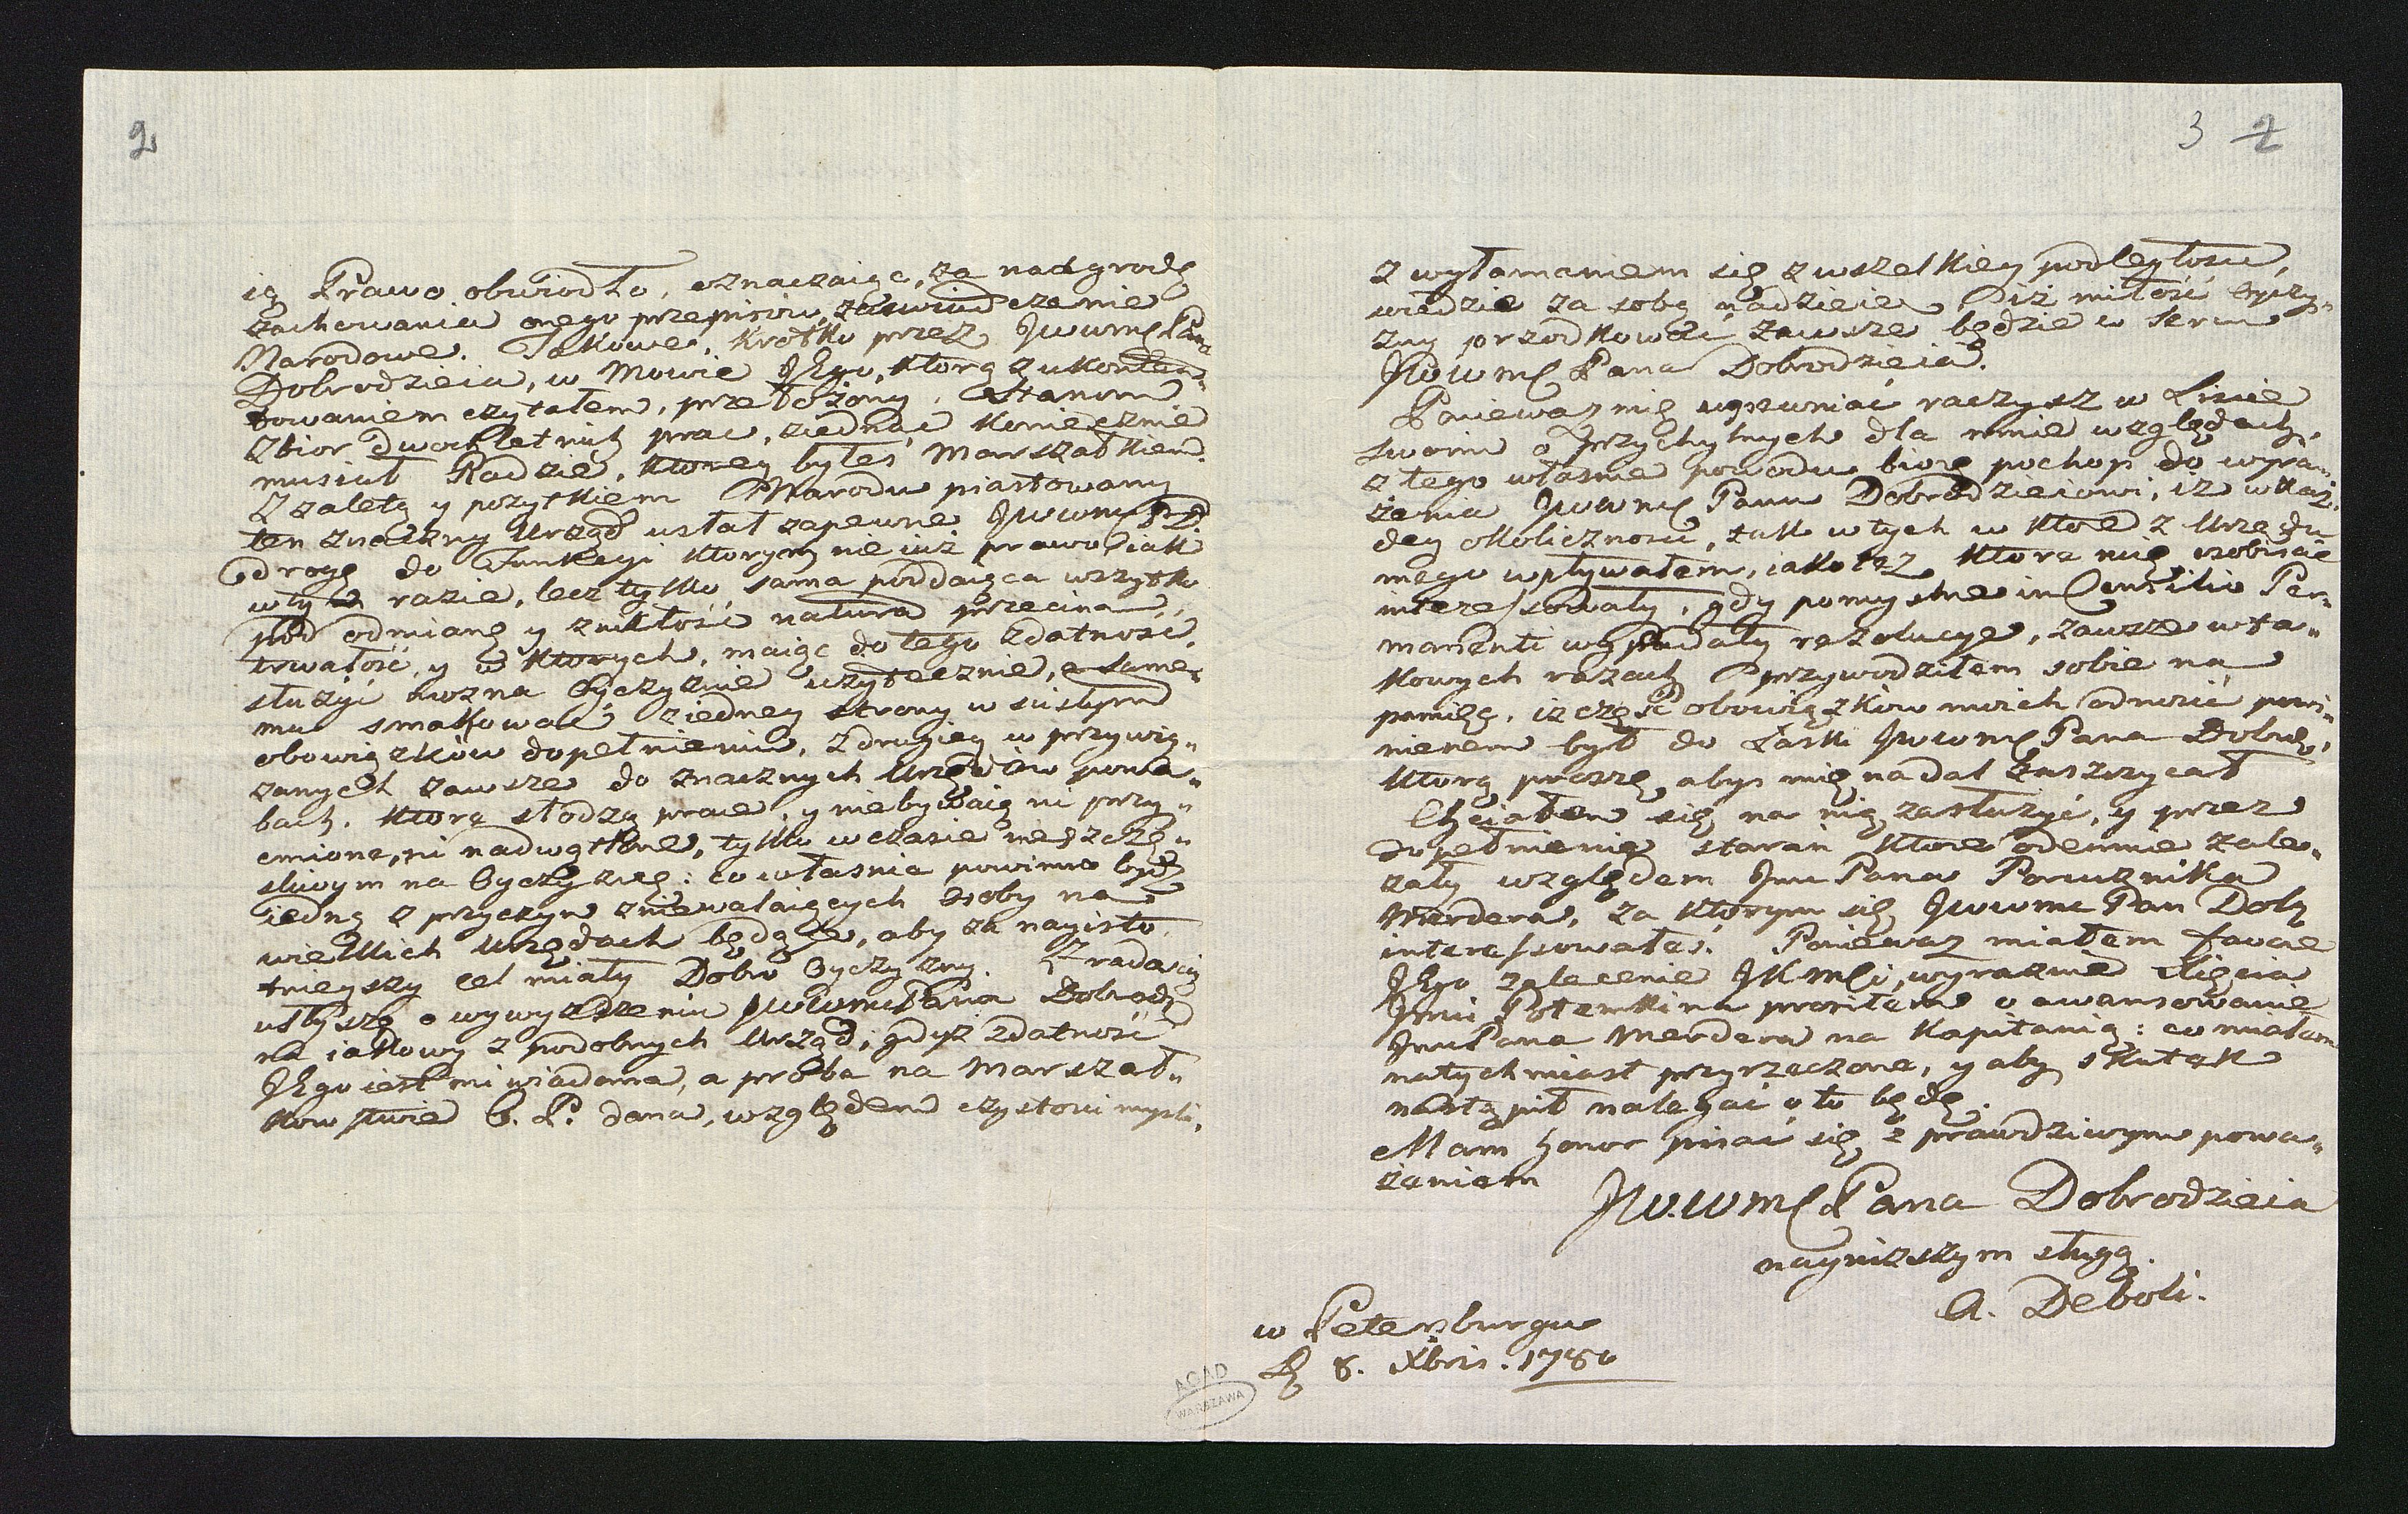 2
ią Prawo obwiodło, oznaczaiąc, za nadgrodę
zachowania onego przepisow, zaswiadczenie
Narodowe. Takowe, krotko przez JWWMC Pana
Dobrodzieia, w Mowie JEgo, ktorą z ukonten„
towaniem czytałem, przełożony, Stanom
Zbior dwochletnich prac, ziednać koniecznie
musiał Radzie, ktorey byłeś Marszałkiem.
Z zaletą y pożytkiem Narodu piastowany
ten znaczny Urząd usłał zapewne JWWMC P. D.
drogę do Funkcyi ktorym nie iuż prawo iak
w tym razie, lecz tylko sama poddaiąca wszytko
pod odmianę y znikłość natura przecina
trwałość, y w ktorych, maiąc do tego zdatność,
służyć można Oyczyznie użytecznie, a same„
mu smakować z iedney strony w scisłym
obowiązkow dopełnieniu, z drugiey w przywią„
zanych zawsze do znacznych Urzędow powa„
bach, ktorą słodzą prace, y nie bywaią ni przy„
cmione, ni nadwątlone, tylko w czasie nieszczę„
sliwym na Oyczyznę: co własnie powinno bydź
iedną z przyczyn zniewalaiących osoby na
wielkich Urzędach będące, aby za nayisto„
tnieyszy cel miały Dobro Oyczyzny. Z radoscią
usłyszę o wywyższeniu JWWMC Pana Dobrodz
na iakowy z podobnych Urząd, gdyż zdatność
JEgo iest mi wiadoma, a proba na Marszał„
kowstwie C. P. dana, względem czystosci mysli,
3 2
z wyłamaniem się z wszelkiey podległosci,
wiedzie za sobą nadzieie, iż miłość Oyczy„
zny przodkować zawsze będzie w sercu
JWWMC Pana Dobrodzieia.
Ponieważ mię upewniać raczysz w Liscie
swoim o przychylnych dla mnie względach,
z tego własnie powodu biorę pochop do wyra„
żenia JWWMC Panu Dobrodzieiowi, iż w każ„
dey okolicznosci, tak w tych w ktore z Urzędu
mego wpływałem, iako też ktore mię osobiscie
interessowały, gdy pomyslne in Consilio Per„
manenti wypadały rezolucye, zawsze w ta„
kowych razach przywodziłem sobie na
pamięć, iż częsć obowiązkow moich odnosić powi„
nienem był do Łask JWWMC Pana Dobrdz,
ktorą proszę, abys mię nadal zaszczycał
Chciałem się na nią zasłużyć, y przez
dopełnienie staran ktore odemnie zale„
żały względem Jmci Pana Porucznika
Merdera, za ktorym się JWWMC Pan Dobr
interessowałeś. Ponieważ miałem
JEgo zalecenie JKMci, wyraznie Xięcia
Jmci Potemkina prosiłem o awansowanie
Jmci Pana Merdera na Kapitanią: co miałem
natychmiast przyrzeczone, y aby skutek
nastąpił nalegać o to będę.
Mam honor pisać się z prawdziwym powa„
żaniem
JW.WMC Pana Dobrodzieia
nayniższym sługą.
A. Deboli.
w Petersburgu
D 8. Xbris. 1780
AGAD
WARSZAWA